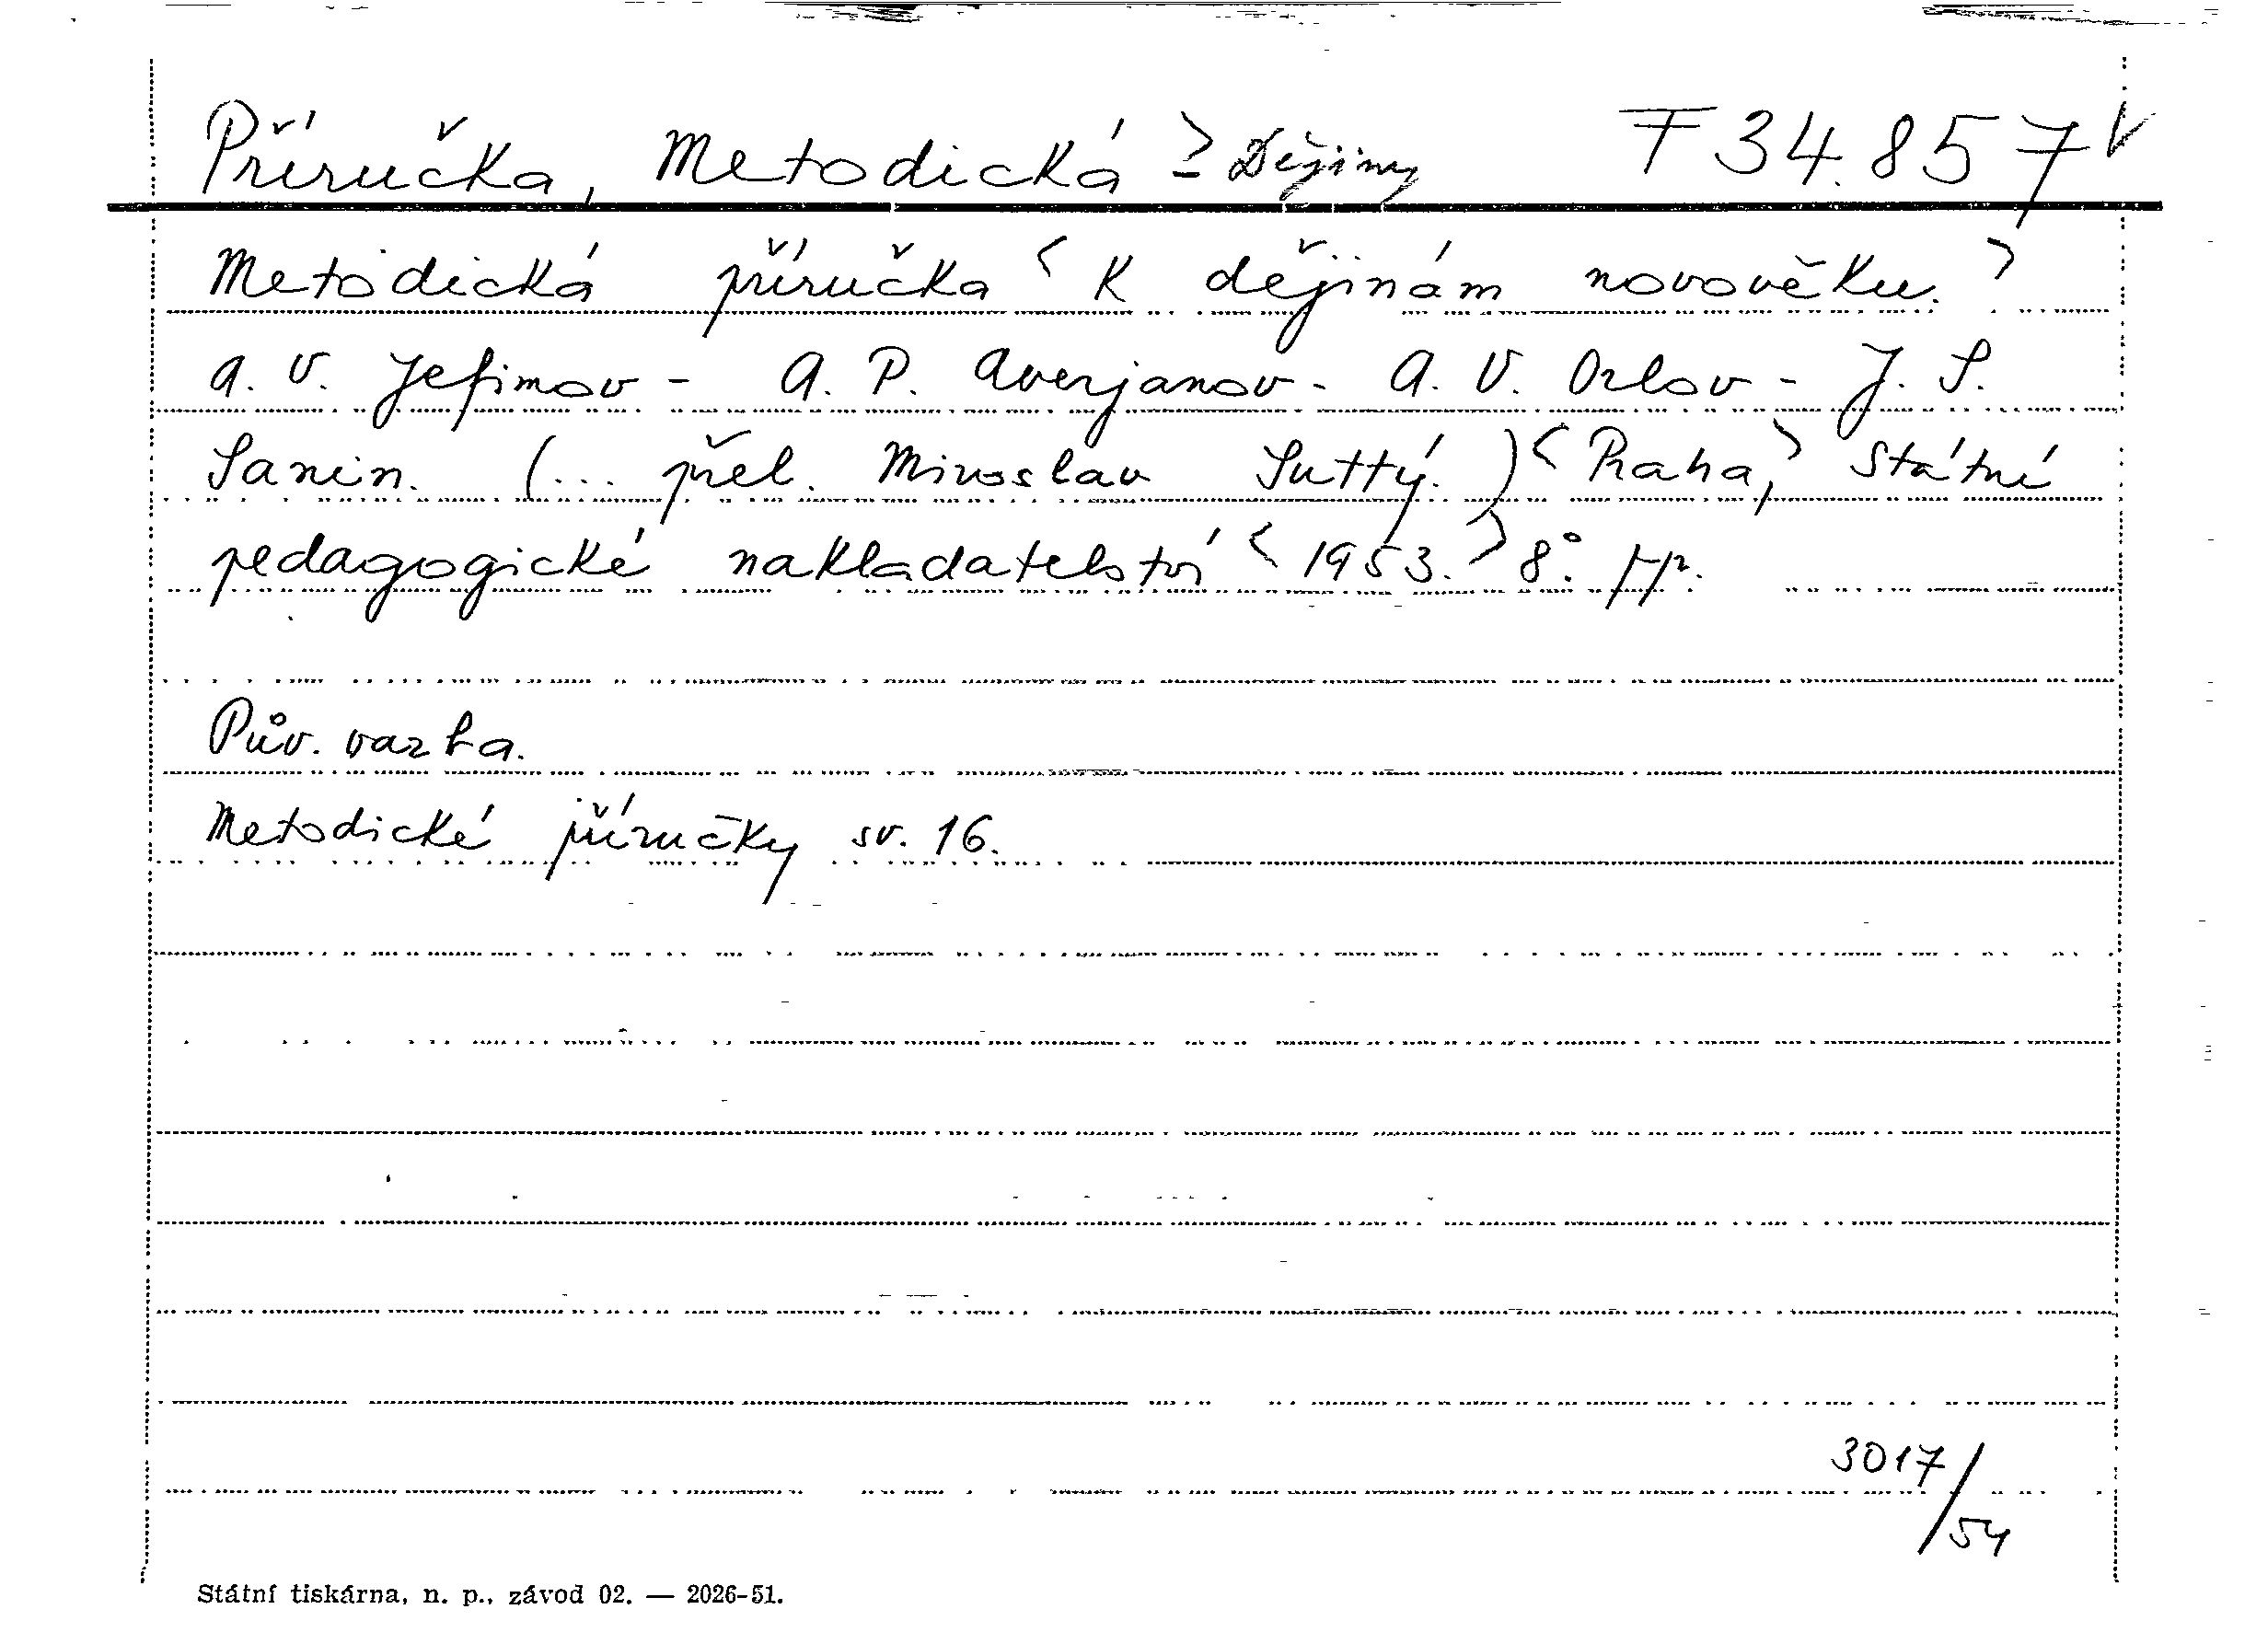 Příručka, Metodická > – Dějiny F 34.857 V
Metodická příručka < K dějinám novověku. >
A. V. Jefimov - A. P. Averjanov - A. V. Orlov - J. S.
Sanin. (... přel. Miroslav Suttý.) < Praha, > Státní
pedagogické nakladatelství < 1953. > 8°.
Pův. vazba.
Metodické příručky sv. 16.
3017/54
Státní tiskárna, n. p., závod 02. — 2026-51.